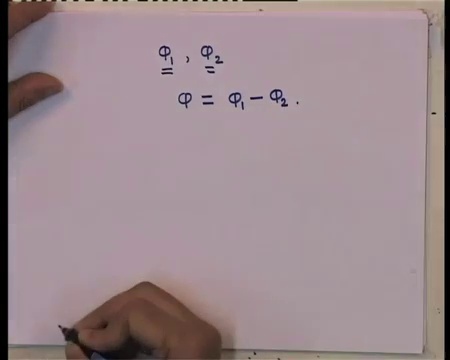 φ₁, φ₂
φ = φ₁ − φ₂.